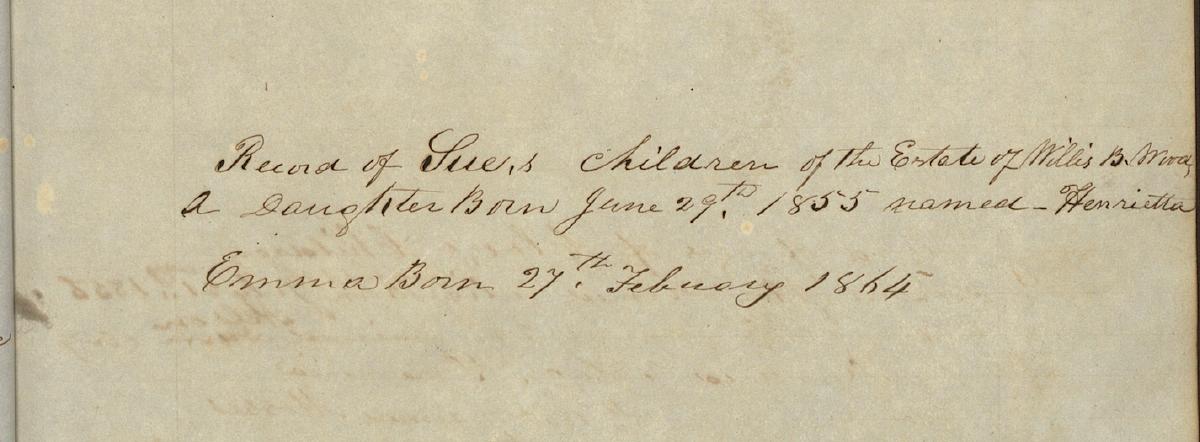 Record of Sue,s children of the Estate of Willis B. Wood,
a Daughter Born June 29th. 1855 named - Henrietta
Emma Born 27th. Febuary 1864